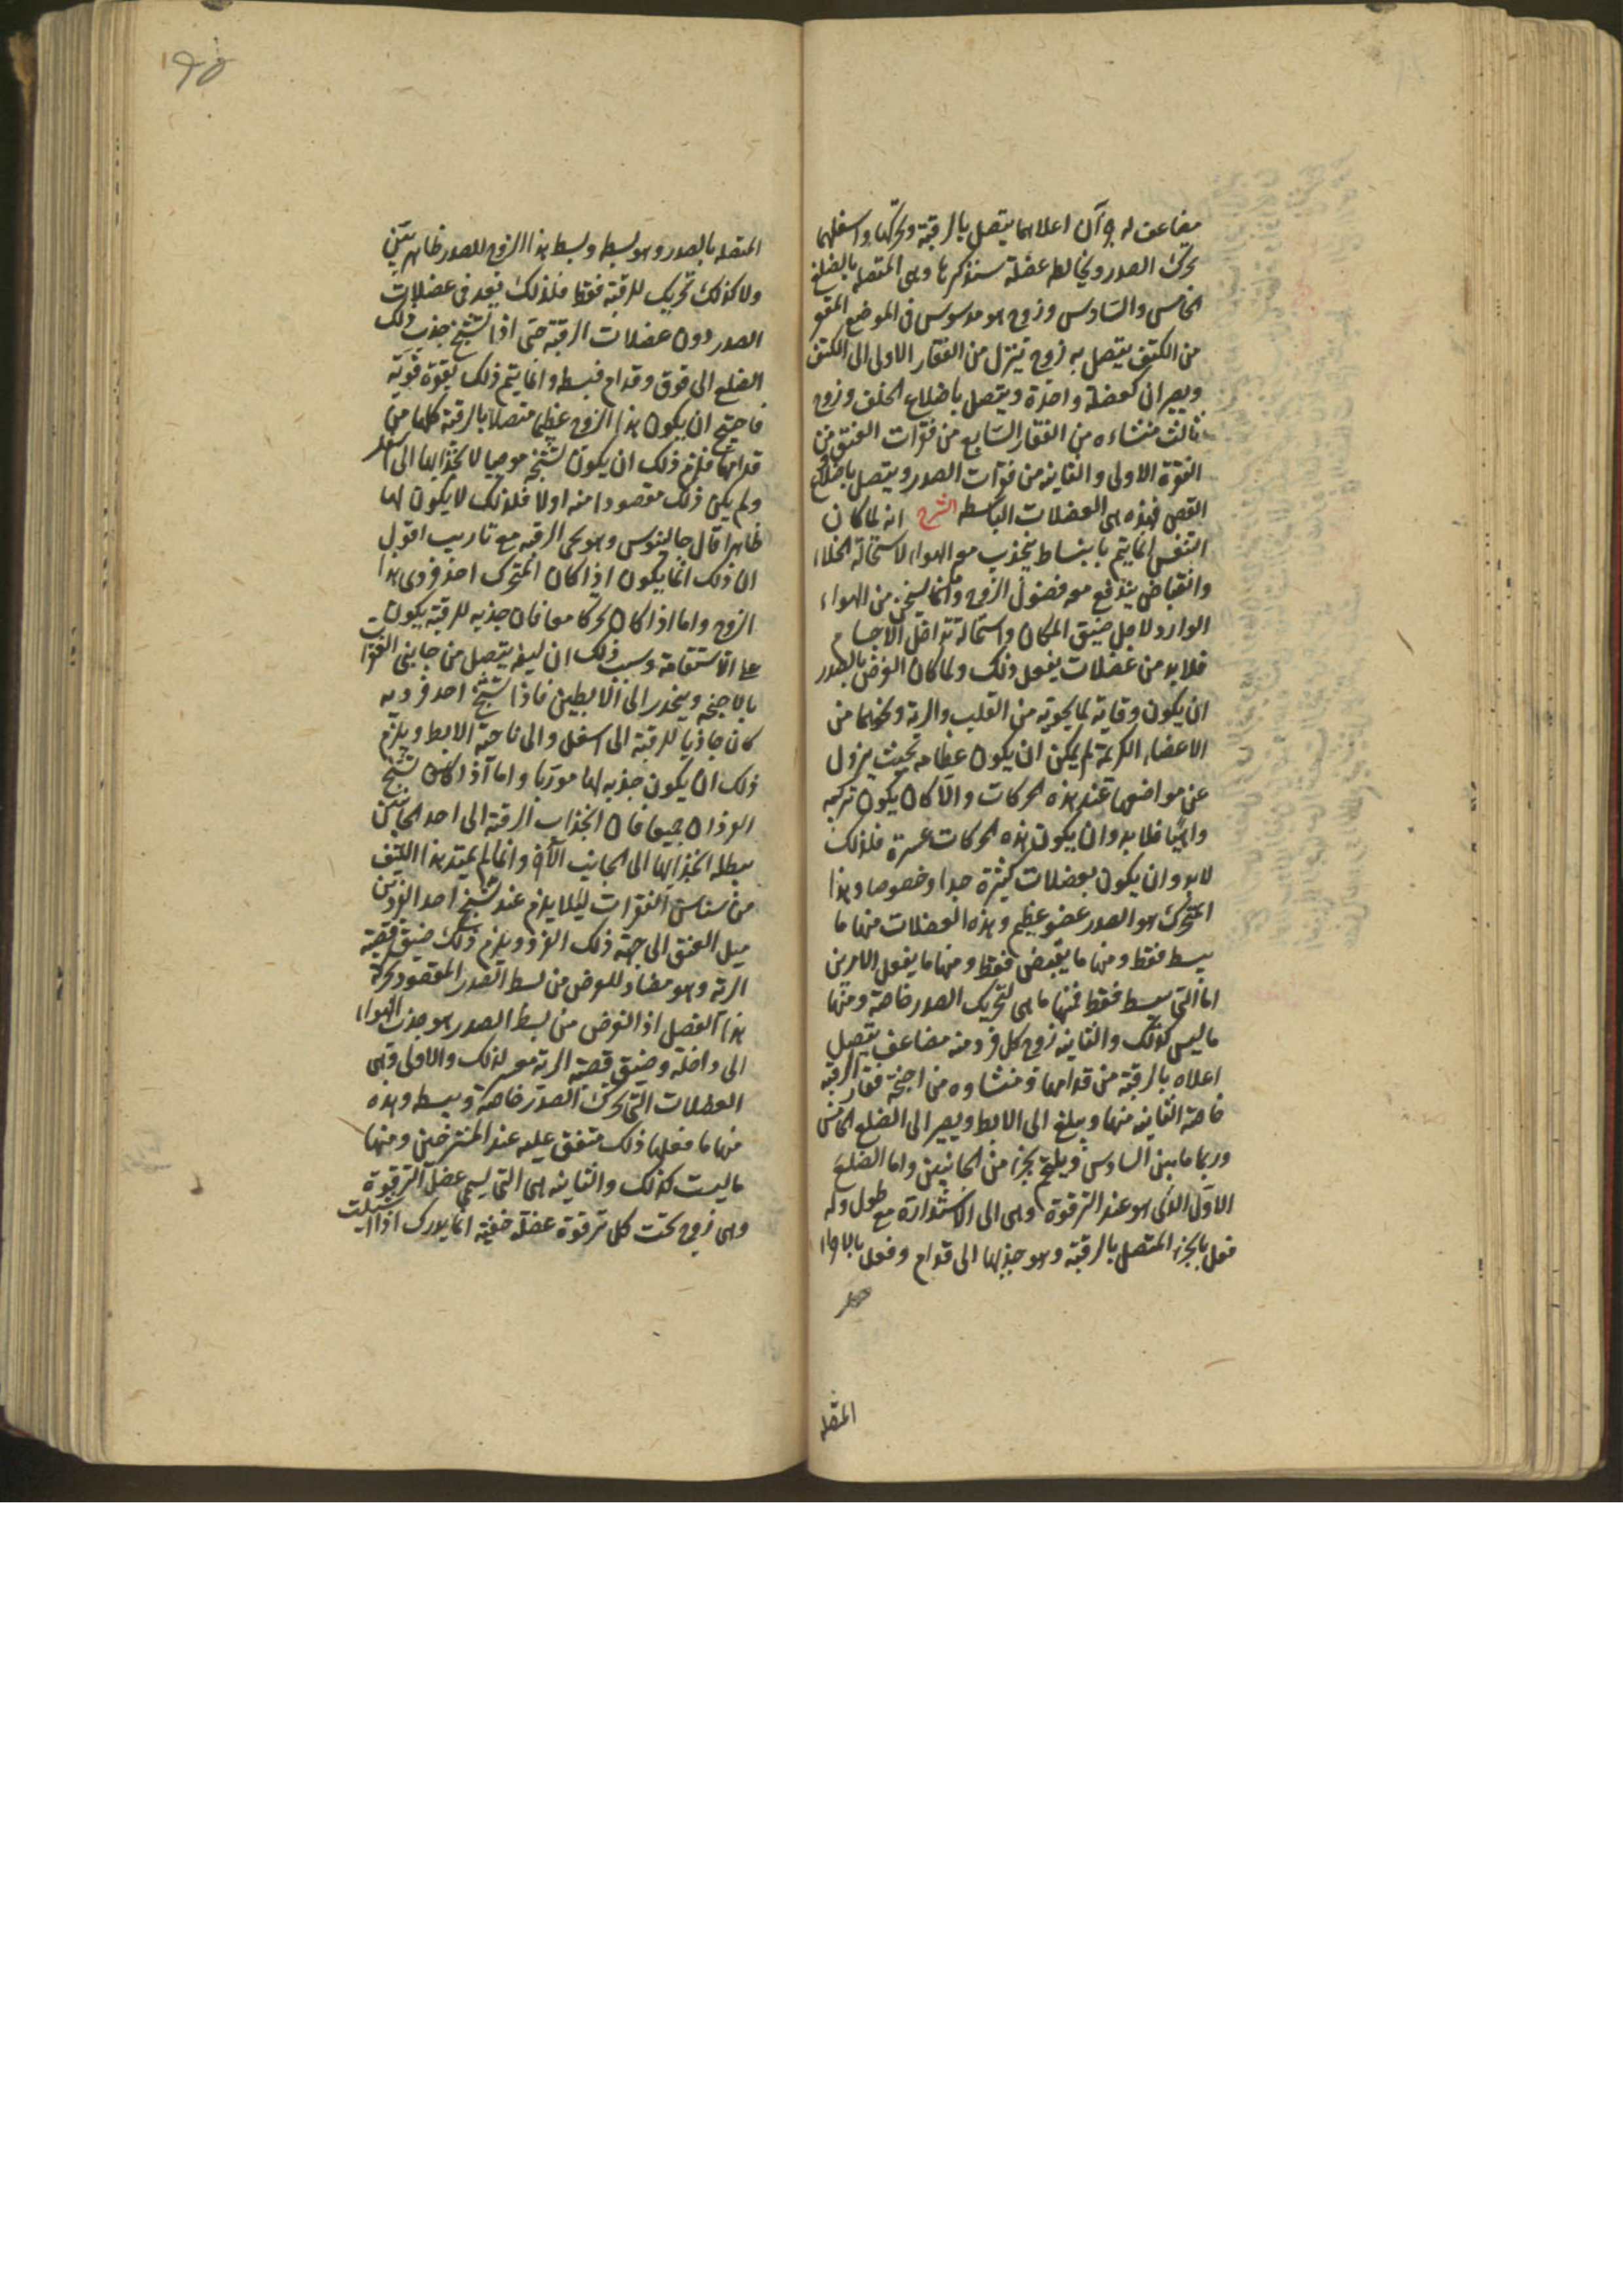 مضاعف له جزآن اعلاهما يتصل بالرقبة ويحركها واسفلهما
يحرك الصدر ويخالطه عضلة سنذكرها وهى المتصلة بالضلع
الخامس والسادس وزوج هو مدسوس فى الموضع المقعر
من الكتف يتصل به زوج ينزل من الفقار الاولى الى الكتف
ويصيران كعضلة واحدة ويتصل باضلاع الخلف وزوج
ثالث منشاءه من الفقار السابع من فقرات العنق من
الفقرة الاولى والثانيه من فقرات الصدر ويتصل باضلاع
القص فهذه هى العضلات الباسطه الشرح انه لما كان
التنفس انما يتم بانبساط ينجذب معه الهواء لاستحالة الخلاء
وانقباض يندفع معه فضول الروح وما يسخن من الهواء
الوارد لاجل ضيق المكان واستحالة تداخل الاجسام
فلابد من عضلات يفعل ذلك ولما كان الغرض بالصدر
ان يكون وقاية لما يحويه من القلب والرية ونحوهما من
الاعضاء الكريمة لم يمكن ان يكون عظامه بحيث يزول
عن مواضعها عند هذه الحركات والا كان يكون تركيبه
واهيا فلابد وان يكون هذه الحركات عسرة فلذلك
لابد وان يكون بعضلات كثيرة جدا وخصوصا وهذا
المتحرك هو الصدر عضو عظيم وهذه العضلات منها ما
يبسط فقط ومنها ما يقبض فقط ومنها ما يفعل الامرين
اما التى يبسط فقط فمنها ما هى لتحريك الصدر خاصة ومنها
ما ليس كذلك والثانيه زوج كل فرد منه مضاعف يتصل
اعلاه بالرقبة من قدامها ومنشاوه من اجنحة فقار الرقبة
خاصة الثانيه منها ويبلغ الى الابط ويصير الى الضلع الخامس
وربما ما بين السادس ويلتحم بجزء من الجانبين واما الضلع
الاول الذى هو عند الترقوة وهى الى الاستدارة مع طول وله
فعل بالجزء المتصل بالرقبة وهو جذبها الى قدام وفعل بالاجزاء
المتصله
المتصله بالصدر وهو بسطه وبسط هذا الزوج للصدر ظاهر بيّن
ولا كذلك تحريك للرقبة فقط فلذلك يعد فى عضلات
الصدر دون عضلات الرقبة حتى اذا تشنج جذب ذلك
الضلع الى فوق وقدام فبسط وانما يتم ذلك بقوة قوية
فاحتيج ان يكون هذا الزوج عظيما متصلا بالرقبة كلها من
قدامها فلزم ذلك ان يكون تشنجه موجبا لانجذابها الى اسفل
ولم يكن ذلك مقصودا منه اولا فلذلك لا يكون لها
ظاهرا قال جالينوس وهو يحرك الرقبه مع تاريب اقول
ان ذلك انما يكون اذا كان المتحرك احد فردى هذا
الزوج واما اذا كان تحركا معا فان جذبه للرقبة يكون
على الاستقامة وسبب ذلك ان ليفه يتصل من جانبى الفقرات
بالاجنحه وينحدر الى الابطين فاذا تشنج احد فرديه
كان جاذبا للرقبة الى اسفل والى ناحية الابط ويلزم
ذلك ان يكون جذبه لها مورّبا واما اذا كان تشنج
الفردان جميعا فان انجذاب الرقبة الى احد الجانبين
يبطله انجذابها الى الجانب الآخر وانما لم يمتد هذا الليف
من سناسن الفقرات ليلا يلزم عند تشنج احد الفردين
ميل العنق الى جهة ذلك الفرد ويلزم ذلك ضيق قصبة
الرية وهو مضاد للغرض من بسط الصدر المقصود بحركة
هذا الفصل اذ الغرض من بسط الصدر هو جذب الهواء
الى داخله وضيق قصبة الرية معسر لذلك والاولى وهى
العضلات التى تحرك الصدر خاصة ويبسط وهذه
منها ما فعلها ذلك متفق عليه عند المشرحين ومنها
ما ليست كذلك والثانيه هى التى يسمى عضل الترقوة
وهى زوج تحت كل ترقوة عضلة خفية انما يدرك اذا اشيلت